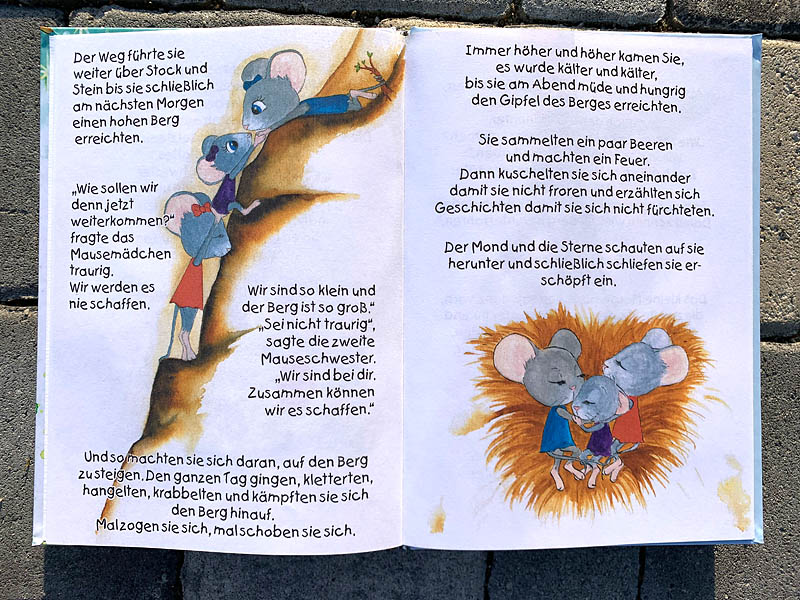 Der Weg führte sie
weiter über Stock und
Stein bis sie schließlich
am nächsten Morgen
einen hohen Berg
erreichten.
„Wie sollen wir
denn jetzt
weiterkommen?“
fragte das
Mausemädchen
traurig.
Wir werden es
nie schaffen.
Wir sind so klein und
der Berg ist so groß.“
„Sei nicht traurig“,
sagte die zweite
Mauseschwester.
„Wir sind bei dir.
Zusammen können
wir es schaffen.“
Und so machten sie sich daran, auf den Berg
zu steigen. Den ganzen Tag gingen, kletterten,
hangelten, krabbelten und kämpften sie sich
den Berg hinauf.
Mal zogen sie sich, mal schoben sie sich.
Immer höher und höher kamen Sie,
es wurde kälter und kälter,
bis sie am Abend müde und hungrig
den Gipfel des Berges erreichten.
Sie sammelten ein paar Beeren
und machten ein Feuer.
Dann kuschelten sie sich aneinander
damit sie nicht froren und erzählten sich
Geschichten damit sie sich nicht fürchteten.
Der Mond und die Sterne schauten auf sie
herunter und schließlich schliefen sie er-
schöpft ein.